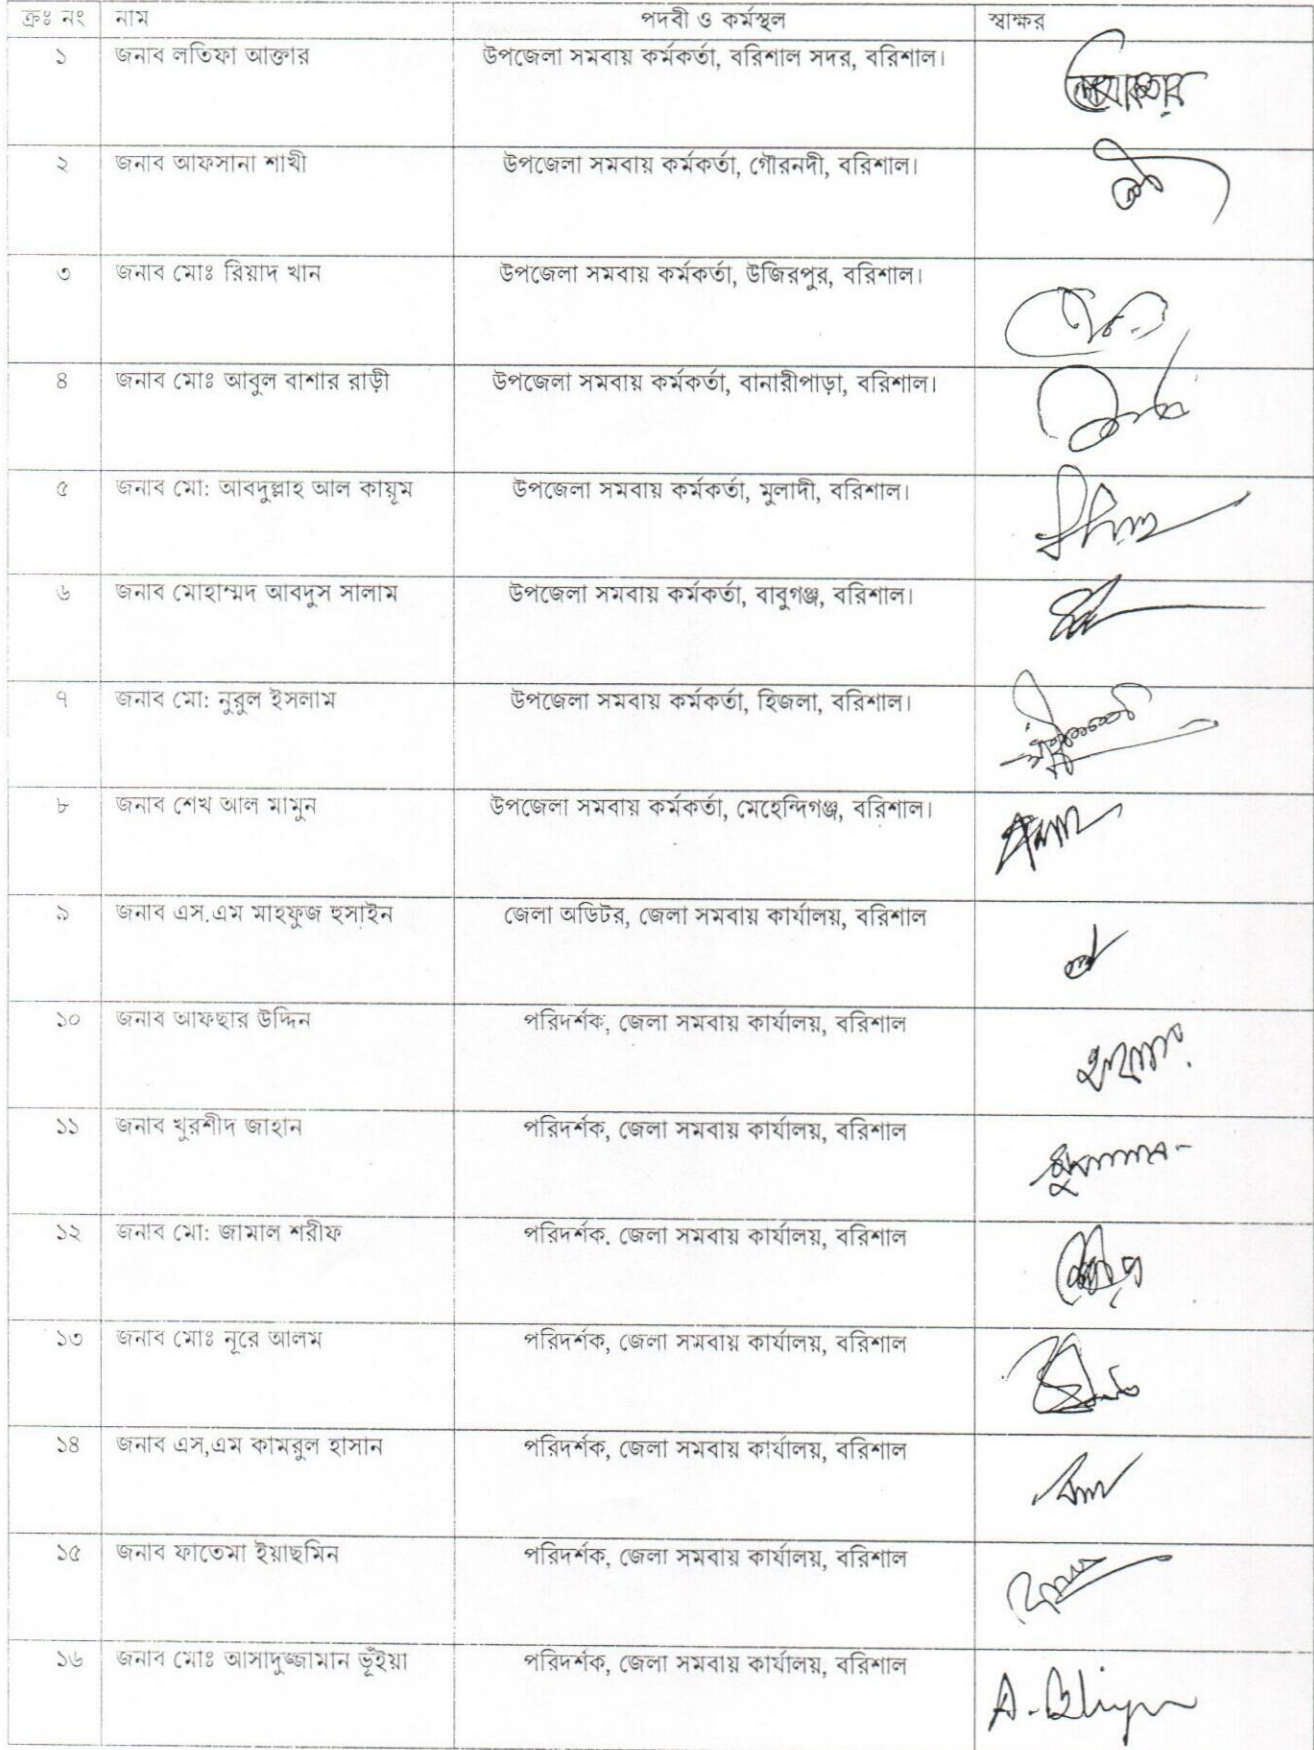 ক্রঃ নং নাম পদবী ও কর্মস্থল স্বাক্ষর
১ জনাব লতিফা আক্তার উপজেলা সমবায় কর্মকর্তা, বরিশাল সদর, বরিশাল।
২ জনাব আফসানা শাখী উপজেলা সমবায় কর্মকর্তা, গৌরনদী, বরিশাল।
৩ জনাব মোঃ রিয়াদ খান উপজেলা সমবায় কর্মকর্তা, উজিরপুর, বরিশাল।
৪ জনাব মোঃ আবুল বাশার রাড়ী উপজেলা সমবায় কর্মকর্তা, বানারীপাড়া, বরিশাল।
৫ জনাব মো: আবদুল্লাহ আল কায়ূম উপজেলা সমবায় কর্মকর্তা, মুলাদী, বরিশাল।
৬ জনাব মোহাম্মদ আবদুস সালাম উপজেলা সমবায় কর্মকর্তা, বাবুগঞ্জ, বরিশাল।
৭ জনাব মো: নুরুল ইসলাম উপজেলা সমবায় কর্মকর্তা, হিজলা, বরিশাল।
৮ জনাব শেখ আল মামুন উপজেলা সমবায় কর্মকর্তা, মেহেন্দিগঞ্জ, বরিশাল।
৯ জনাব এস.এম মাহফুজ হুসাইন জেলা অডিটর, জেলা সমবায় কার্যালয়, বরিশাল
১০ জনাব আফছার উদ্দিন পরিদর্শক, জেলা সমবায় কার্যালয়, বরিশাল
১১ জনাব খুরশীদ জাহান পরিদর্শক, জেলা সমবায় কার্যালয়, বরিশাল
১২ জনাব মো: জামাল শরীফ পরিদর্শক, জেলা সমবায় কার্যালয়, বরিশাল
১৩ জনাব মোঃ নূরে আলম পরিদর্শক, জেলা সমবায় কার্যালয়, বরিশাল
১৪ জনাব এস,এম কামরুল হাসান পরিদর্শক, জেলা সমবায় কার্যালয়, বরিশাল
১৫ জনাব ফাতেমা ইয়াছমিন পরিদর্শক, জেলা সমবায় কার্যালয়, বরিশাল
১৬ জনাব মোঃ আসাদুজ্জামান ভূঁইয়া পরিদর্শক, জেলা সমবায় কার্যালয়, বরিশাল